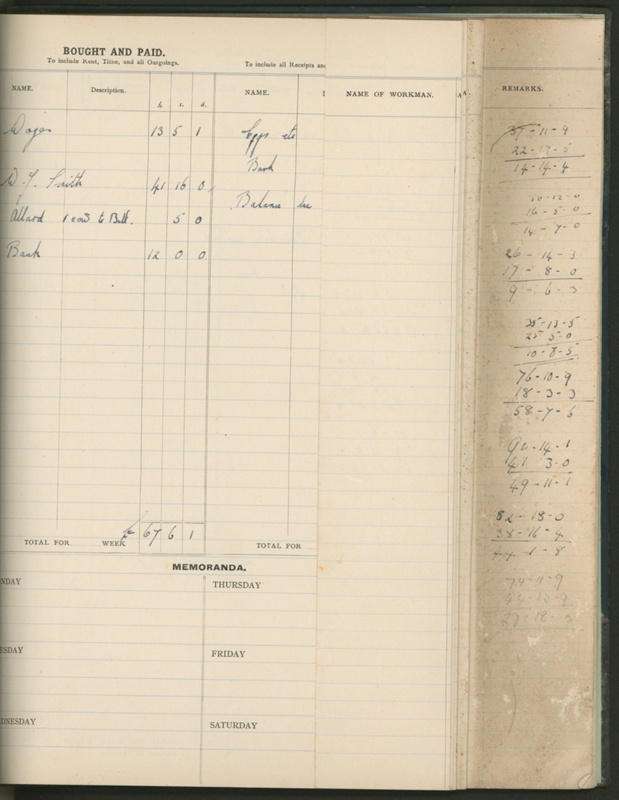 BOUGHT AND PAID.
To include Rent, Tithe, and all Outgoings.
To include all Receipts an
NAME. Description. £. s. d. NAME.
NAME OF WORKMAN.
REMARKS.
Wages 13 5 1 Eggs etc
Bank
Smith 41 16 0
Balance
Allard 1 cow to Bull. 5 0
Bank 12 0 0
TOTAL FOR WEEK £ 67 6 1 TOTAL FOR
MEMORANDA.
NDAY THURSDAY
ESDAY FRIDAY
DNESDAY SATURDAY
37-11-9
14-14-4
16-5-0
14-7-0
26-14-3
17-8-0
9-6-3
25 5-0
10-8-5
76-10-9
18-3-3
58-7-6
41 3-0
49-11-1
82-18-0
38-16-4
44-1-8
74-11-9